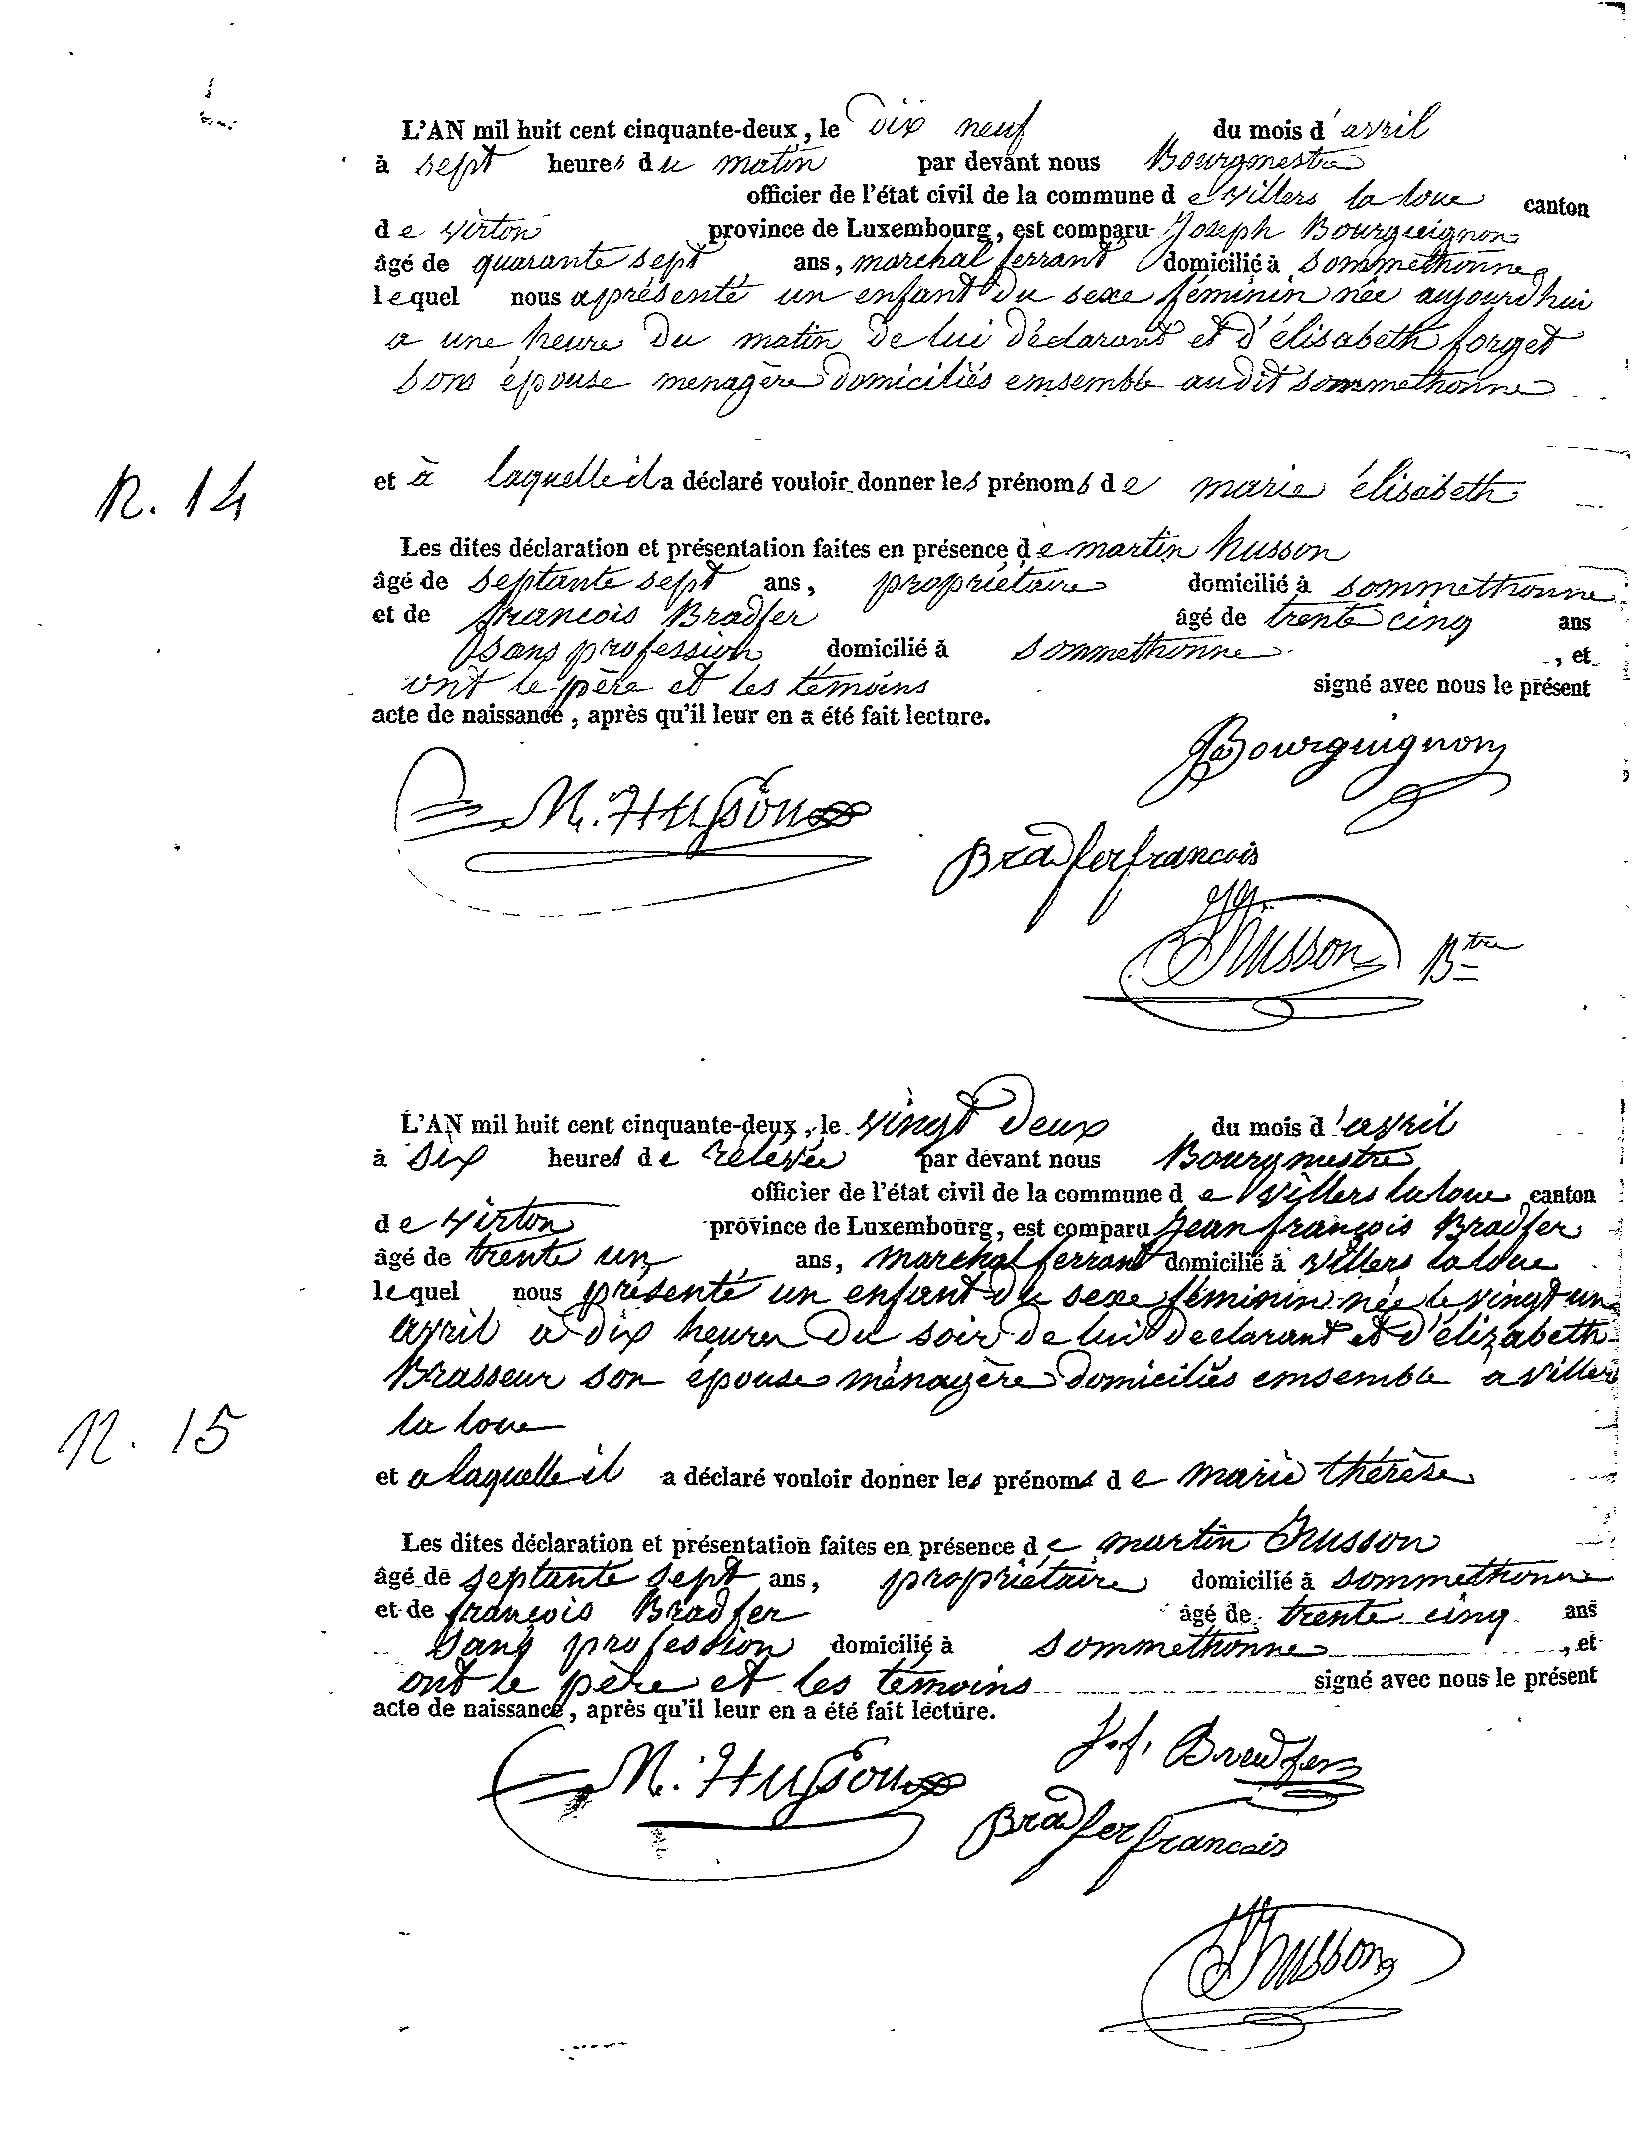 L'AN mil huit cent cinquante-deux, le dix neuf du mois d'avril
à sept heures du matin par devant nous Bourgmestre
officier de l'état civil de la commune de Villers la loue canton
de Virton province de Luxembourg, est comparu Joseph Bourguignon
âgé de quarante sept ans, marchal ferrant domicilié à Sommethonne
lequel nous a présenté un enfant du sexe féminin née aujourdhui
a une heure du matin de lui déclarant et d'élisabeth forget
son épouse menagère domiciliés emsemble audit sommethonne
N. 14
et à laquelle il a déclaré vouloir donner les prénoms de marie élisabeth
Les dites déclaration et présentation faites en présence de martin husson
âgé de septante sept ans, propriétaire domicilié à sommethonne
et de francois Bradfer âgé de trente cinq ans
sans profession domicilié à Sommethonne, et
ont le père et les témoins signé avec nous le présent
acte de naissance, après qu'il leur en a été fait lecture.
JBourguignon
M. Husson
Bradfer francois
Husson Btre
L'AN mil huit cent cinquante-deux, le vingt deux du mois d'avril
à six heures de relevée par devant nous Bourgmestre
officier de l'état civil de la commune de Villers la loue canton
de Virton province de Luxembourg, est comparu Jean françois Bradfer
âgé de trente un ans, marchal ferrant domicilié à Villers la loue
lequel nous présenté un enfant du sexe féminin née le vingt un
avril à dix heures du soir de lui declarant et d'élizabeth
Brasseur son épouse ménagère domiciliés emsemble a Villers
la loue
N. 15
et a laquelle il a déclaré vouloir donner les prénoms de marie thérèse
Les dites déclaration et présentation faites en présence de martin husson
âgé de septante sept ans, propriétaire domicilié à sommethonne
et de françois Bradfer âgé de trente cinq ans
sans profession domicilié à Sommethonne, et
ont le père et les témoins signé avec nous le présent
acte de naissance, après qu'il leur en a été fait lecture.
J.f. Bradfer
M. Husson
Bradfer francois
Husson